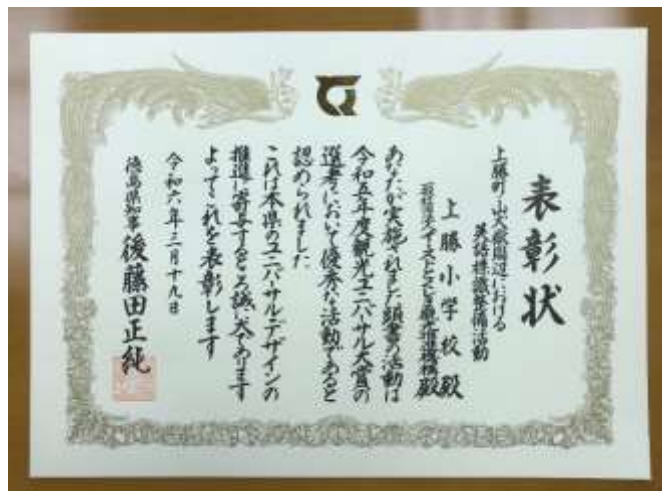 表彰状
上勝町山犬嶽周辺における
英語標識整備活動
上勝小学校殿
一般社団法人イーストとくしま観光推進機構殿
あなたが実施されました頭書の活動は
令和五年度観光ユニバーサル大賞の
選考において優秀な活動であると
認められました
これは本県のユニバーサルデザインの
推進に寄与するところ誠に大であります
よってこれを表彰します
令和六年三月十九日
徳島県知事 後藤田正純